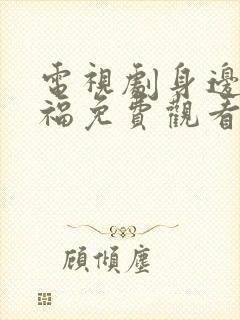 電視劇身邊
福免費觀看
顧傾塵